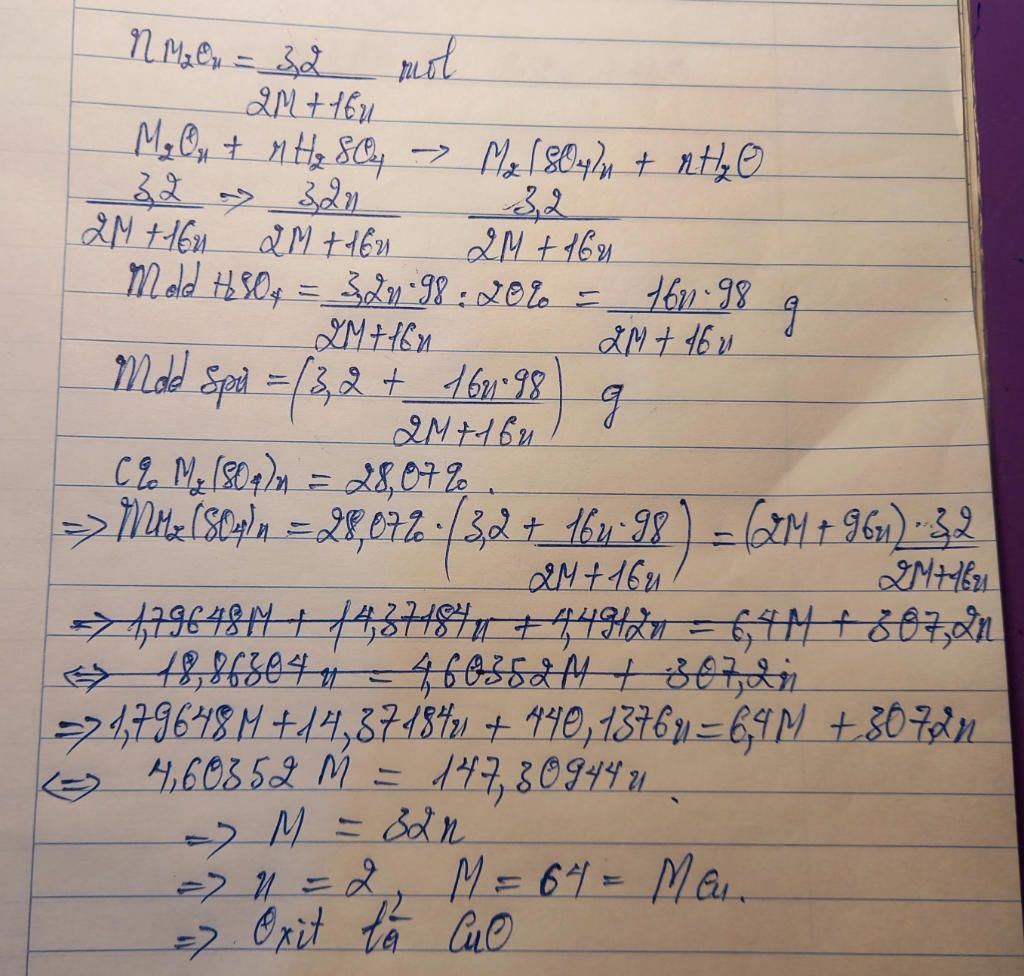 nM₂Oₙ = 3,2/(2M+16n) mol
M₂Oₙ + nH₂SO₄ → M₂(SO₄)ₙ + nH₂O
3,2/(2M+16n) → 3,2n/(2M+16n) 3,2/(2M+16n)
mdd H₂SO₄ = 3,2n·98/(2M+16n) : 20% = 16n·98/(2M+16n) g
mdd spú = (3,2 + 16n·98/(2M+16n)) g
C% M₂(SO₄)ₙ = 28,07%.
=> mM₂(SO₄)ₙ = 28,07%·(3,2 + 16n·98/(2M+16n)) = (2M+96n)·3,2/(2M+16n)
=> 1,79648M + 14,37184n + 4,4912n = 6,4M + 307,2n
<=> 18,86304n = 4,60352M + 307,2n
=> 1,79648M + 14,37184n + 440,1376n = 6,4M + 307,2n
<=> 4,60352 M = 147,30944n.
=> M = 32n
=> n = 2, M = 64 = MCu.
=> Oxit là CuO